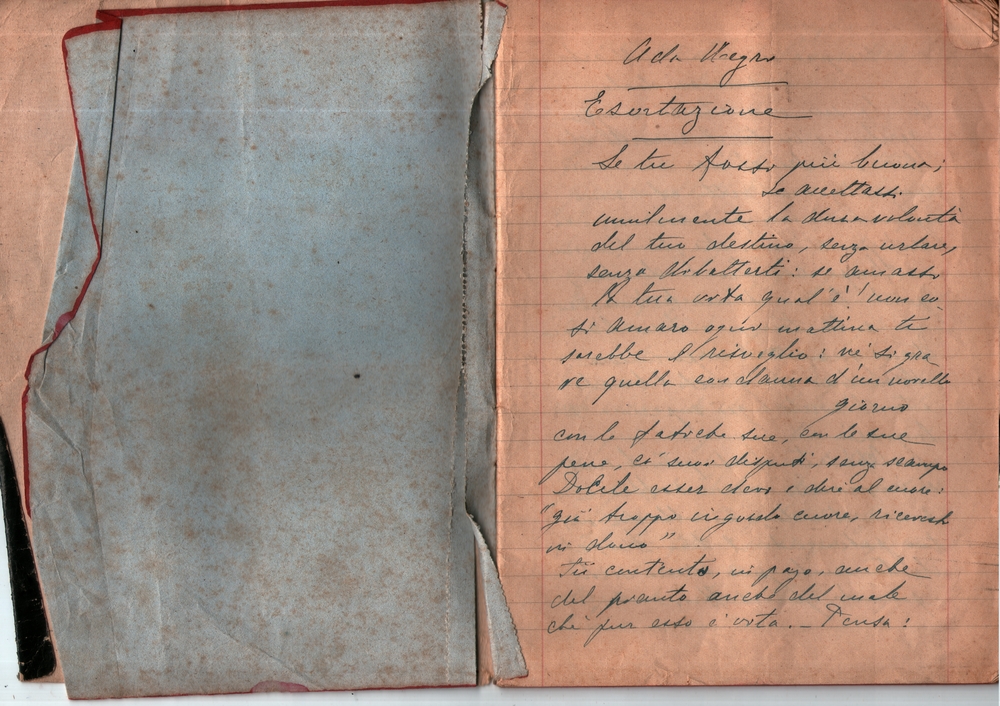 Ada Negri
Esortazione
Se tu fossi più buona;
se accettassi
umilmente la dura volontà
del tuo destino, senza urlare,
senza dibatterti: se amassi
la tua vita qual'è! non co
sì amaro ogni mattina ti
sarebbe il risveglio: nè sì gra
ve quella condanna d'un novello
giorno
con le fatiche sue, con le sue
pene, i suoi disputi, senza scampo
Docile esser devi e dire al cuore:
"già troppo ingordo cuore, ricevesti
in dono"
Sii contento, in pace, anche
del pianto anche del male
chè pur esso è vita. _ Pensa: